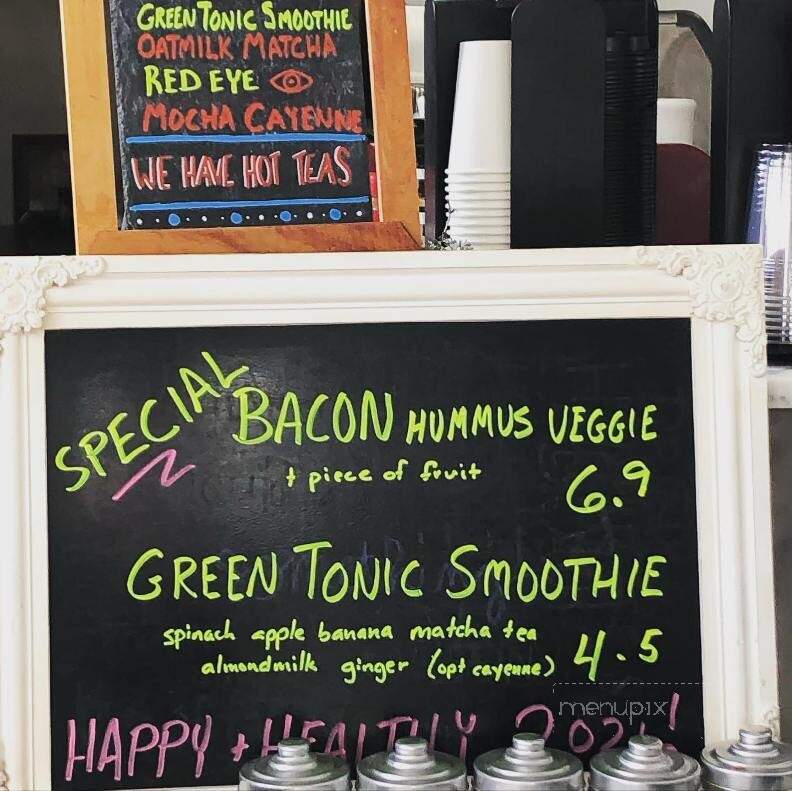 GREEN TONIC SMOOTHIE
OATMILK MATCHA
RED EYE
MOCHA CAYENNE
WE HAVE HOT TEAS
SPECIAL
BACON HUMMUS VEGGIE
+ piece of fruit
6.9
GREEN TONIC SMOOTHIE
spinach apple banana matcha tea
almondmilk ginger (opt cayenne)
4.5
menupix
HAPPY + HEALTHY